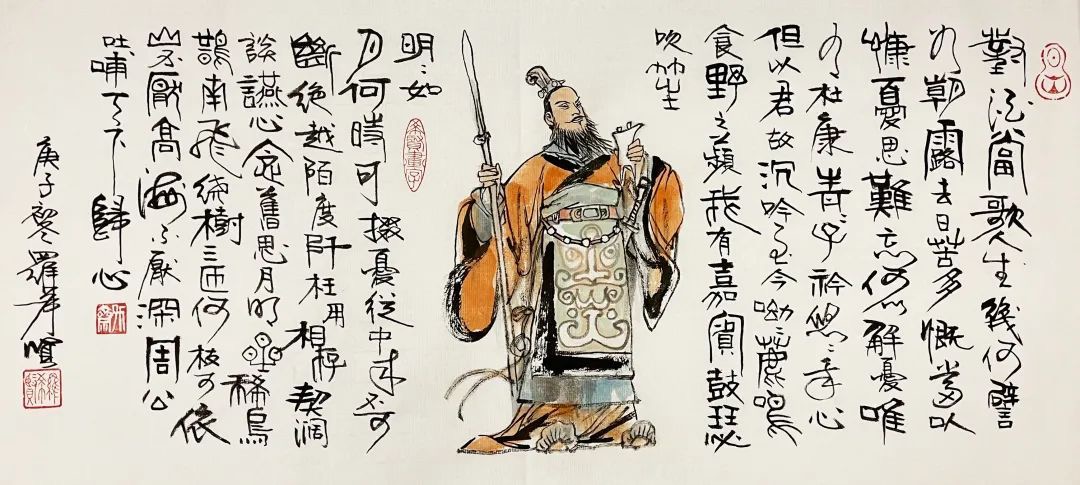 對酒當歌人生幾何譬
如朝露去日苦多慨當以
慷憂思難忘何以解憂唯
有杜康青〻子衿悠〻我心
但以君故沉吟至今呦〻鹿鳴
食野之蘋我有嘉賓鼓瑟
吹笙
明〻如
月何時可掇憂從中來不可
斷絕越陌度阡枉用相存契闊
談讌心念舊恩月明星稀烏
鵲南飛繞樹三匝何枝可依
山不厭高海不厭深周公
吐哺天下歸心
庚子羅